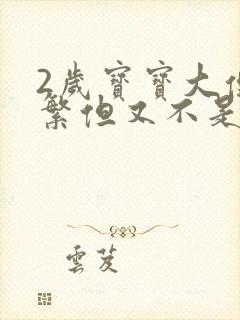 2歲寶寶大
繁但又不是
雲芨